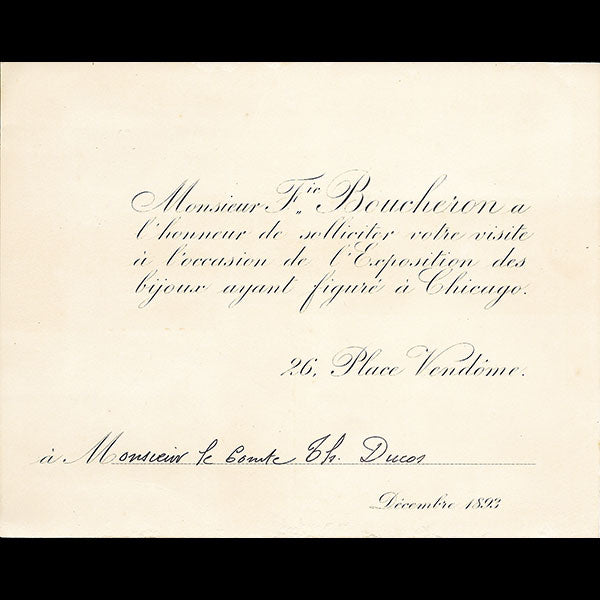 Monsieur F.ic Boucheron a
l'honneur de solliciter votre visite
à l'occasion de l'Exposition des
bijoux ayant figuré à Chicago.
26, Place Vendôme.
à Monsieur le Comte Th. Ducos
Décembre 1893